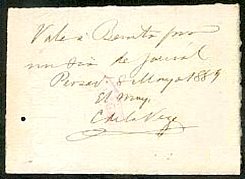 Vale á Benito por
un dia de jornal
Persev. 8 Mayo 1889
El May.
C. de la Vega